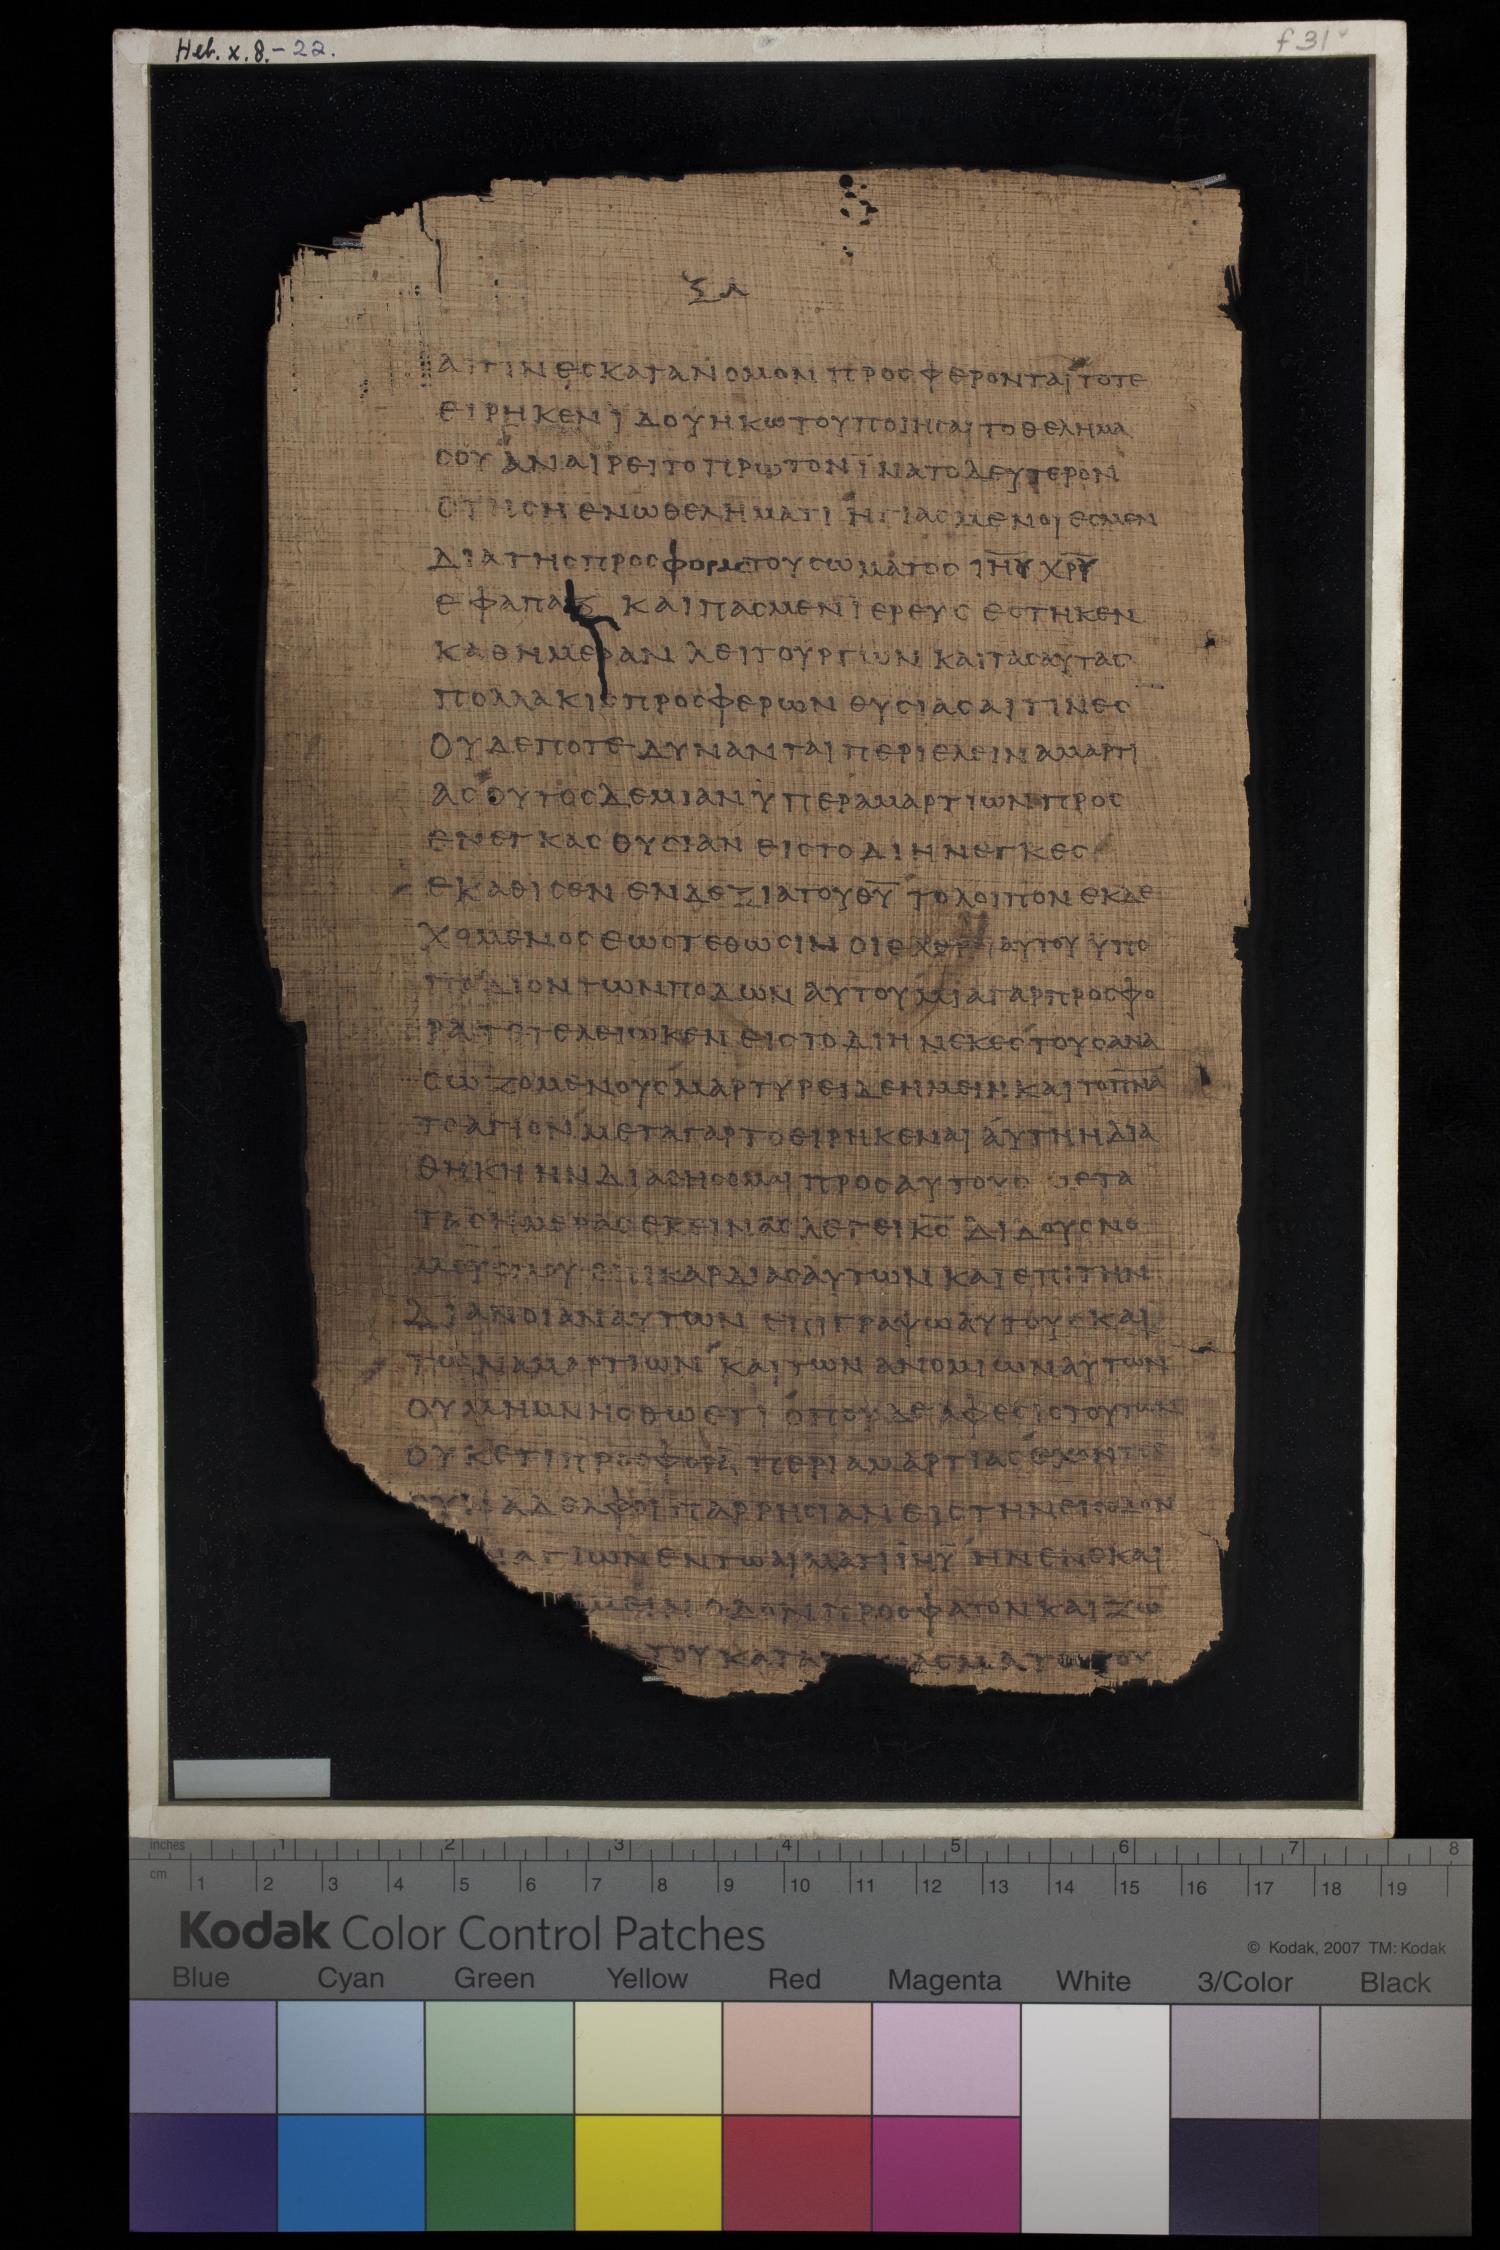 Heb. x. 8.-22.
f 31 v
ξα
ΑΙΤΙΝΕϹΚΑΤΑΝΟΜΟΝΠΡΟϹΦΕΡΟΝΤΑΙΤΟΤΕ
ΕΙΡΗΚΕΝΙΔΟΥΗΚΩΤΟΥΠΟΙΗϹΑΙΤΟΘΕΛΗΜΑ
ϹΟΥΑΝΑΙΡΕΙΤΟΠΡΩΤΟΝΪΝΑΤΟΔΕΥΤΕΡΟΝ
ϹΤΗϹΗΕΝΩΘΕΛΗΜΑΤΙΗΓΙΑϹΜΕΝΟΙΕϹΜΕΝ
ΔΙΑΤΗϹΠΡΟϹΦΟΡΑϹΤΟΥϹΩΜΑΤΟϹΙΗΥ̅ΧΡΥ̅
ΕΦΑΠΑΞΚΑΙΠΑϹΜΕΝΪΕΡΕΥϹΕϹΤΗΚΕΝ
ΚΑΘΗΜΕΡΑΝΛΕΙΤΟΥΡΓΩΝΚΑΙΤΑϹΑΥΤΑϹ
ΠΟΛΛΑΚΙϹΠΡΟϹΦΕΡΩΝΘΥϹΙΑϹΑΙΤΙΝΕϹ
ΟΥΔΕΠΟΤΕΔΥΝΑΝΤΑΙΠΕΡΙΕΛΕΙΝΑΜΑΡΤΙ
ΑϹΟΥΤΟϹΔΕΜΙΑΝΫΠΕΡΑΜΑΡΤΙΩΝΠΡΟϹ
ΕΝΕΓΚΑϹΘΥϹΙΑΝΕΙϹΤΟΔΙΗΝΕΓΚΕϹ
ΕΚΑΘΙϹΕΝΕΝΔΕΞΙΑΤΟΥΘΥ̅ΤΟΛΟΙΠΟΝΕΚΔΕ
ΧΟΜΕΝΟϹΕΩϹΤΕΘΩϹΙΝΟΙΕΧΘΡΟΙΑΥΤΟΥΫΠΟ
ΠΟΔΙΟΝΤΩΝΠΟΔΩΝΑΥΤΟΥΜΙΑΓΑΡΠΡΟϹΦΟ
ΡΑΤΕΤΕΛΕΙΩΚΕΝΕΙϹΤΟΔΙΗΝΕΚΕϹΤΟΥϹΑΝΑ
ϹΩΖΟΜΕΝΟΥϹΜΑΡΤΥΡΕΙΔΕΗΜΕΙΝΚΑΙΤΟΠ̅Ν̅Α̅
ΤΟΑΓΙΟΝΜΕΤΑΓΑΡΤΟΕΙΡΗΚΕΝΑΙΑΥΤΗΗΔΙΑ
ΘΗΚΗΗΝΔΙΑΘΗϹΟΜΑΙΠΡΟϹΑΥΤΟΥϹΜΕΤΑ
ΤΑϹΗΜΕΡΑϹΕΚΕΙΝΑϹΛΕΓΕΙΚ̅Ϲ̅ΔΙΔΟΥϹΝΟ
ΜΟΥϹΜΟΥΕΠΙΚΑΡΔΙΑϹΑΥΤΩΝΚΑΙΕΠΙΤΗΝ
ΔΙΑΝΟΙΑΝΑΥΤΩΝΕΠΙΓΡΑΨΩΑΥΤΟΥϹΚΑΙ
ΤΩΝΑΜΑΡΤΙΩΝΚΑΙΤΩΝΑΝΟΜΙΩΝΑΥΤΩΝ
ΟΥΜΗΜΝΗϹΘΩΕΤΙΟΠΟΥΔΕΑΦΕϹΙϹΤΟΥΤΩΝ
ΟΥΚΕΤΙΠΡΟϹΦΟΡΑΠΕΡΙΑΜΑΡΤΙΑϹΕΧΟΝΤΕϹ
ΟΥΝΑΔΕΛΦΟΙΠΑΡΡΗϹΙΑΝΕΙϹΤΗΝΕΙϹΟΔΟΝ
ΑΓΙΩΝΕΝΤΩΑΙΜΑΤΙΙΗΥ̅ΗΝΕΝΕΚΑΙ
ΜΕΙΝΟΔΟΝΠΡΟϹΦΑΤΟΝΚΑΙΖΩ
ΤΟΥΚΑΤΑ ΑϹΜΑΤΟϹΤΟΥ
inches 1 2 3 4 5 6 7 8
cm 1 2 3 4 5 6 7 8 9 10 11 12 13 14 15 16 17 18 19
Kodak Color Control Patches
© Kodak, 2007 TM: Kodak
Blue Cyan Green Yellow Red Magenta White 3/Color Black